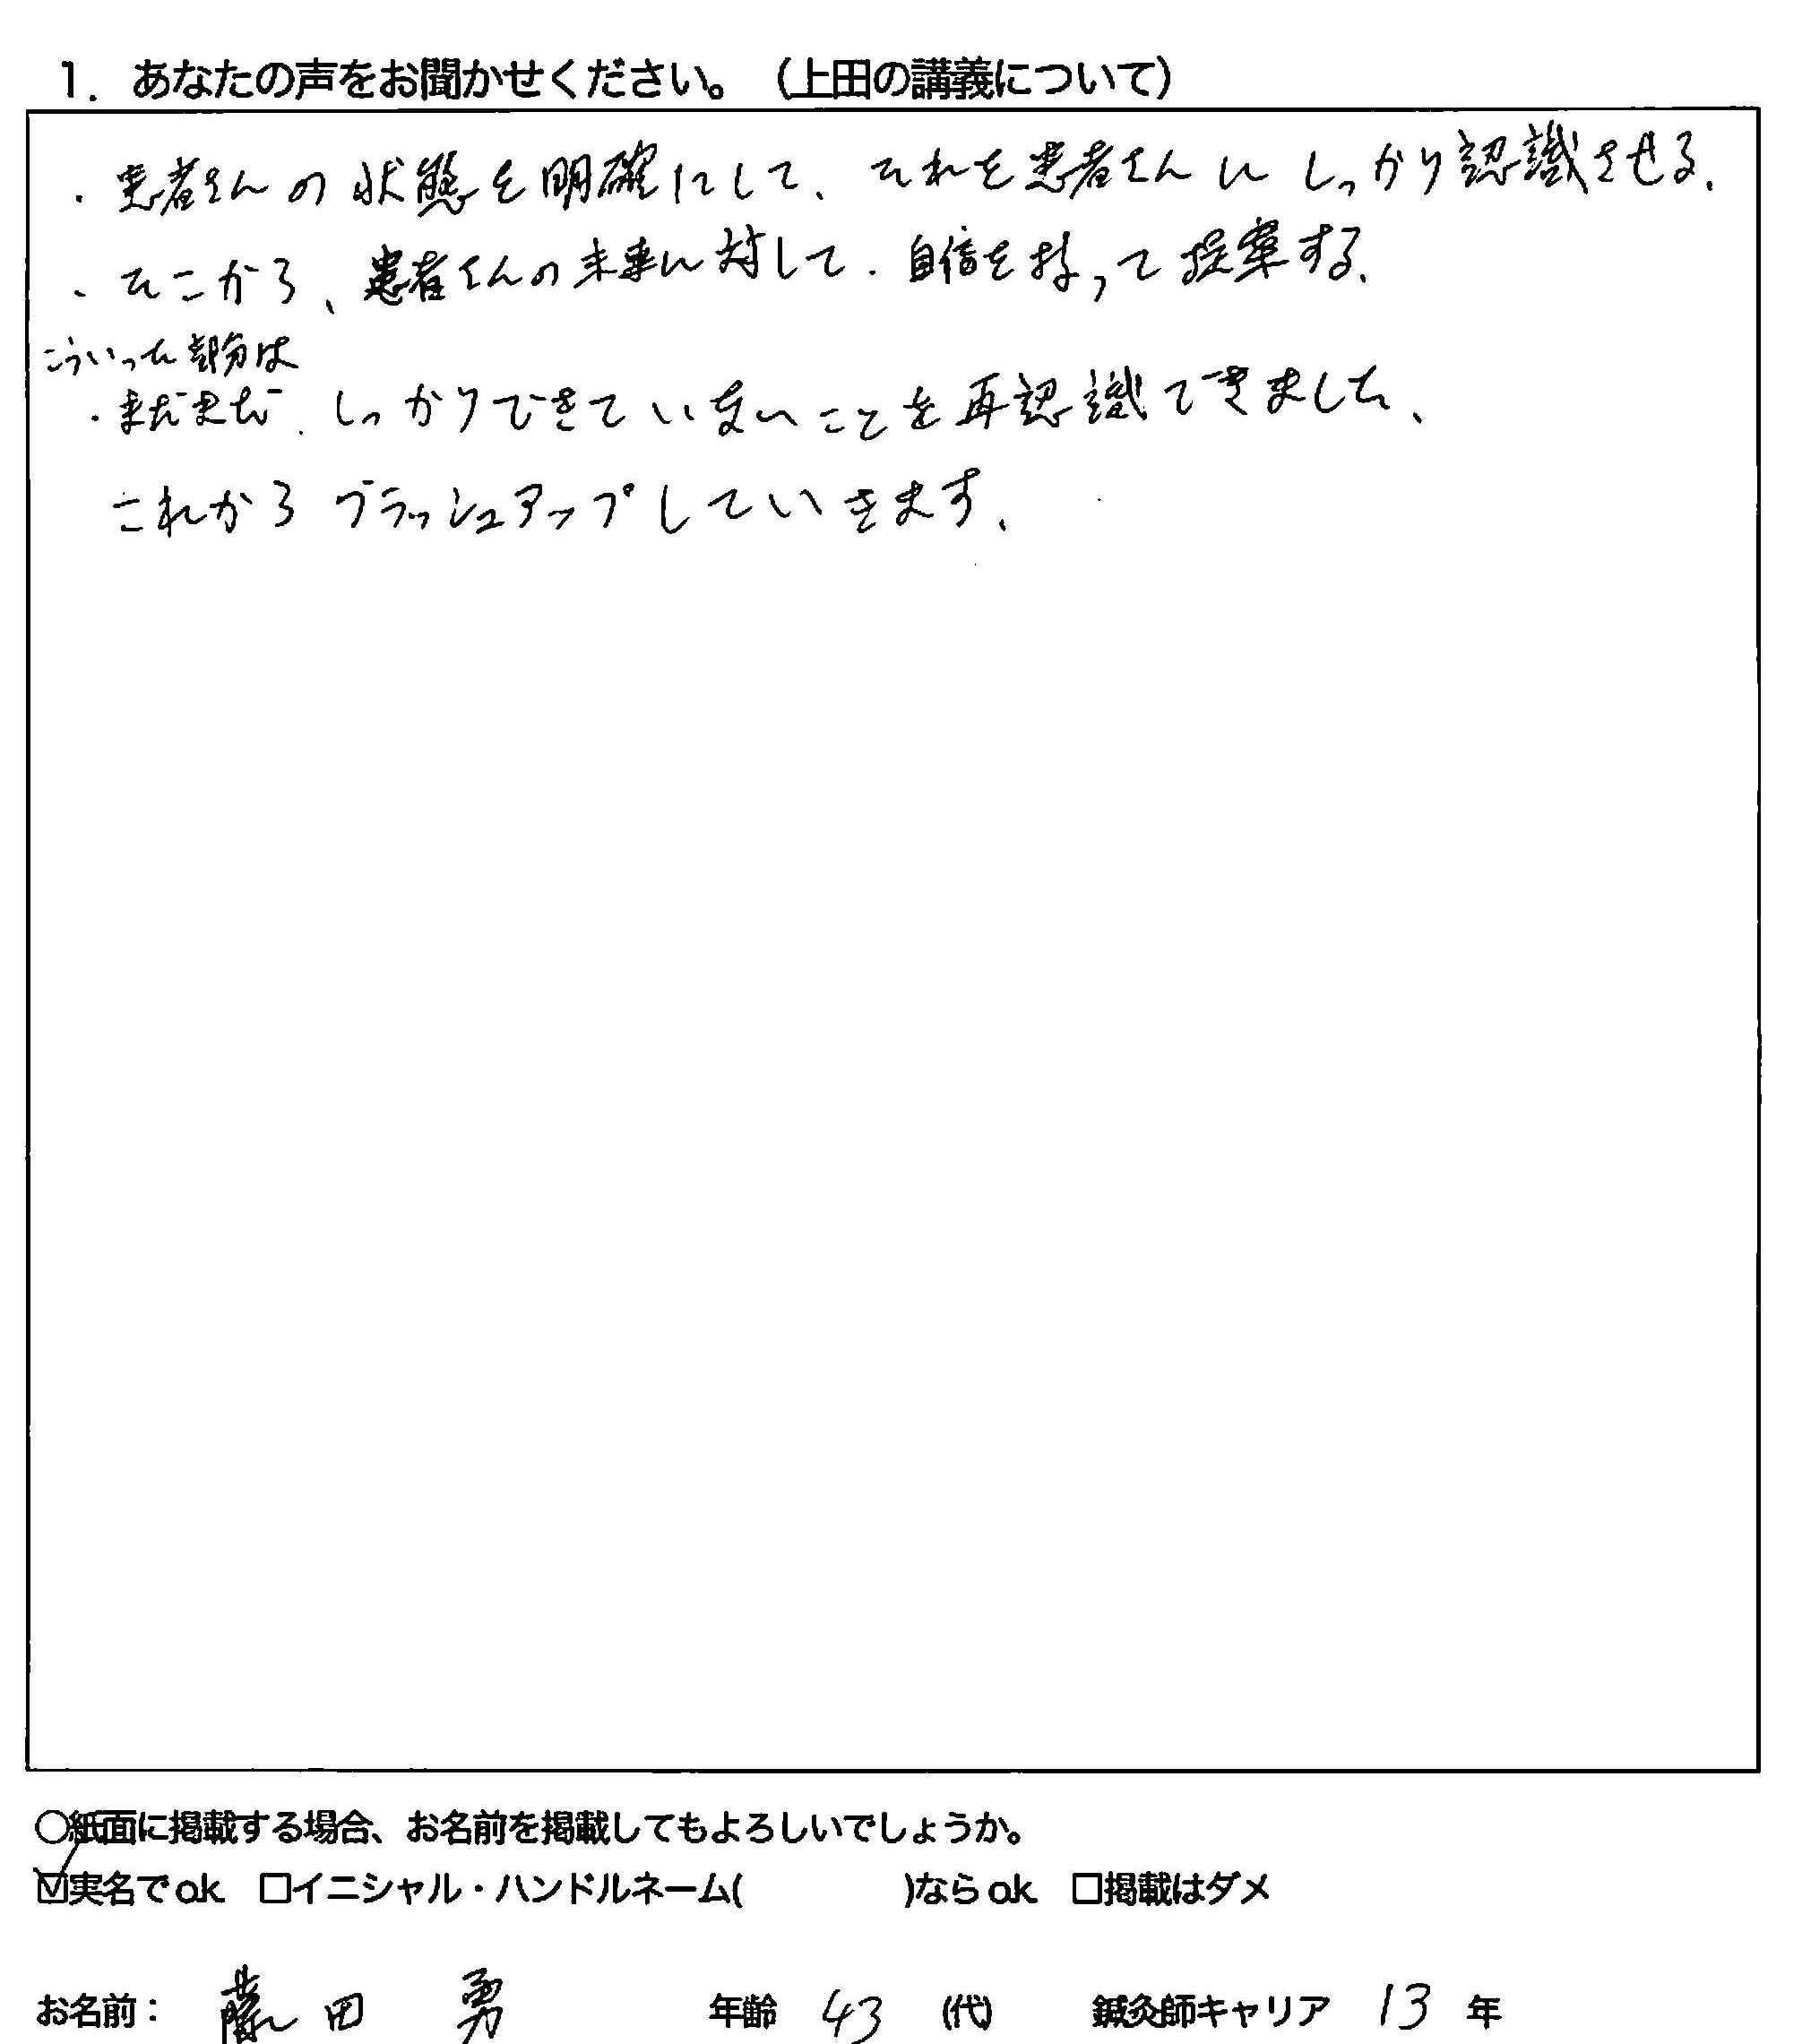 1．あなたの声をお聞かせください。（上田の講義について）
・患者さんの状態を明確にして、それを患者さんにしっかり認識させる。
・そこから、患者さんの未来に対して、自信を持って提案する。
こういった部分は
・まだまだ、しっかりできていないことを再認識できました、
これからブラッシュアップしていきます、
○紙面に掲載する場合、お名前を掲載してもよろしいでしょうか。
☑実名でok □イニシャル・ハンドルネーム( )ならok □掲載はダメ
お名前： 藤田 勇 年齢 43 (代) 鍼灸師キャリア 13 年